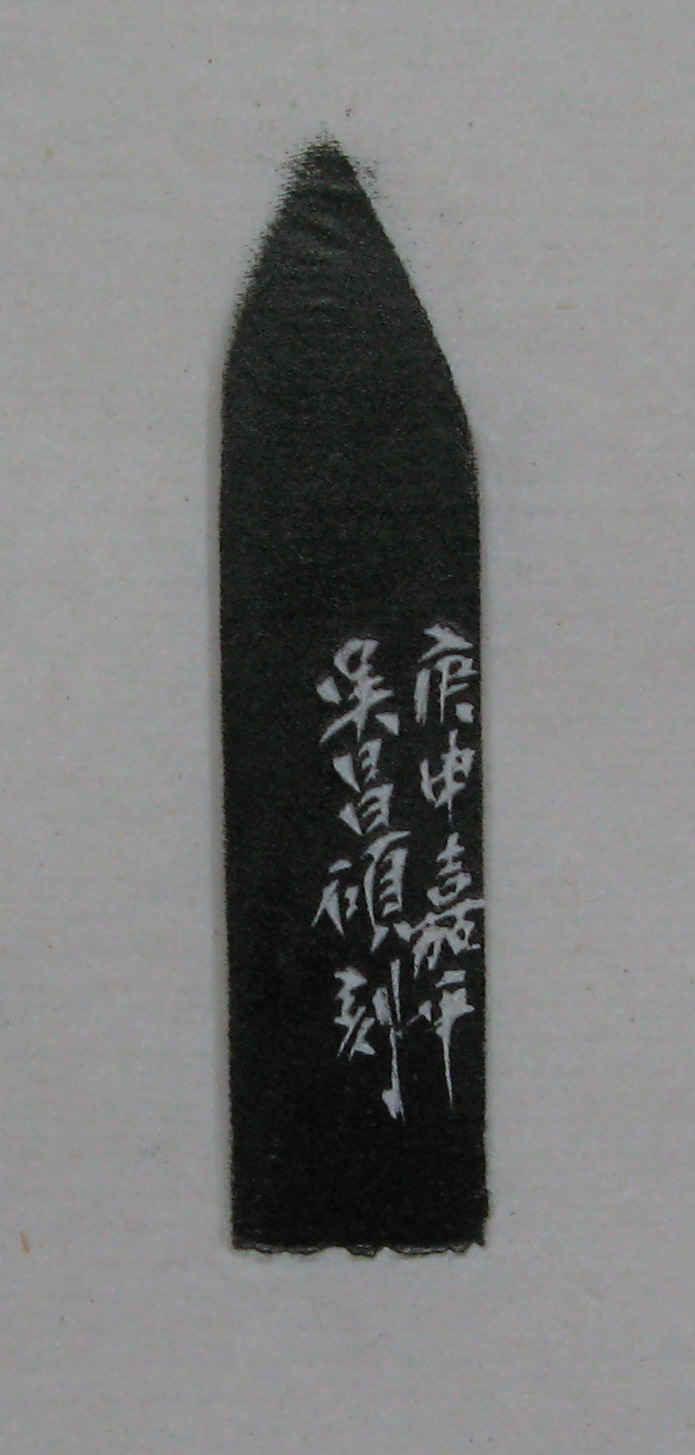 庚申嘉平
吴昌碩刻